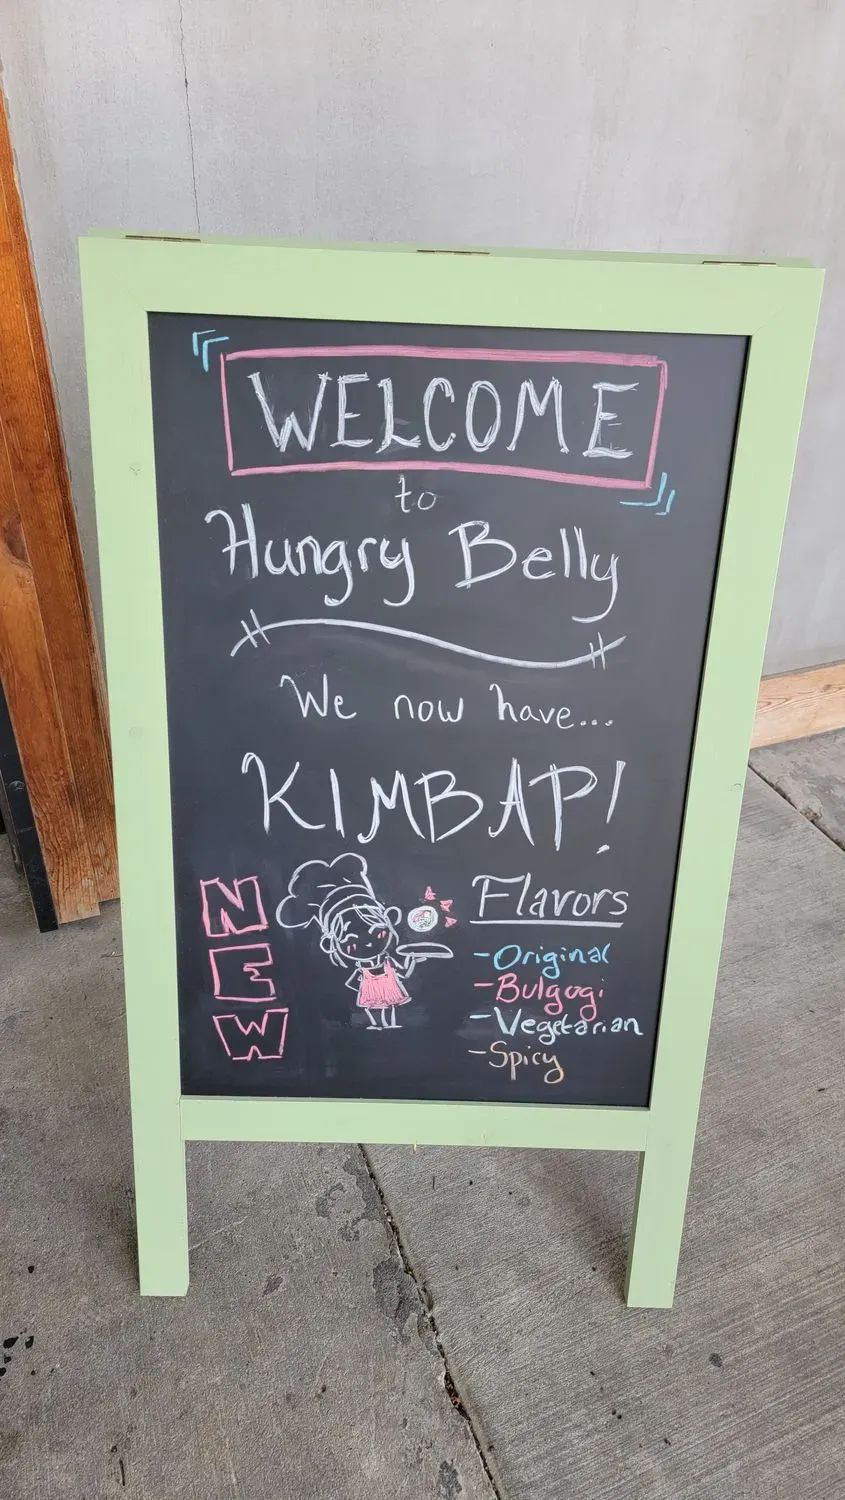 WELCOME
to
Hungry Belly
We now have...
KIMBAP!
NEW
Flavors
-Original
-Bulgogi
-Vegetarian
-Spicy